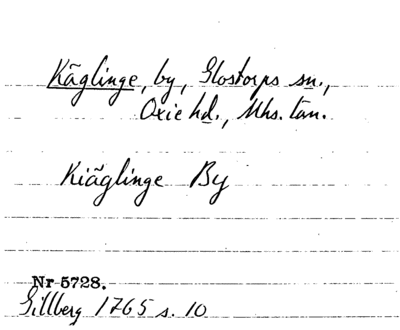 Käglinge, by, Glostorps sn.,
Oxie hd., Mhs. län.
Kiäglinge By
Nr 5728.
Gillberg 1765 s. 10